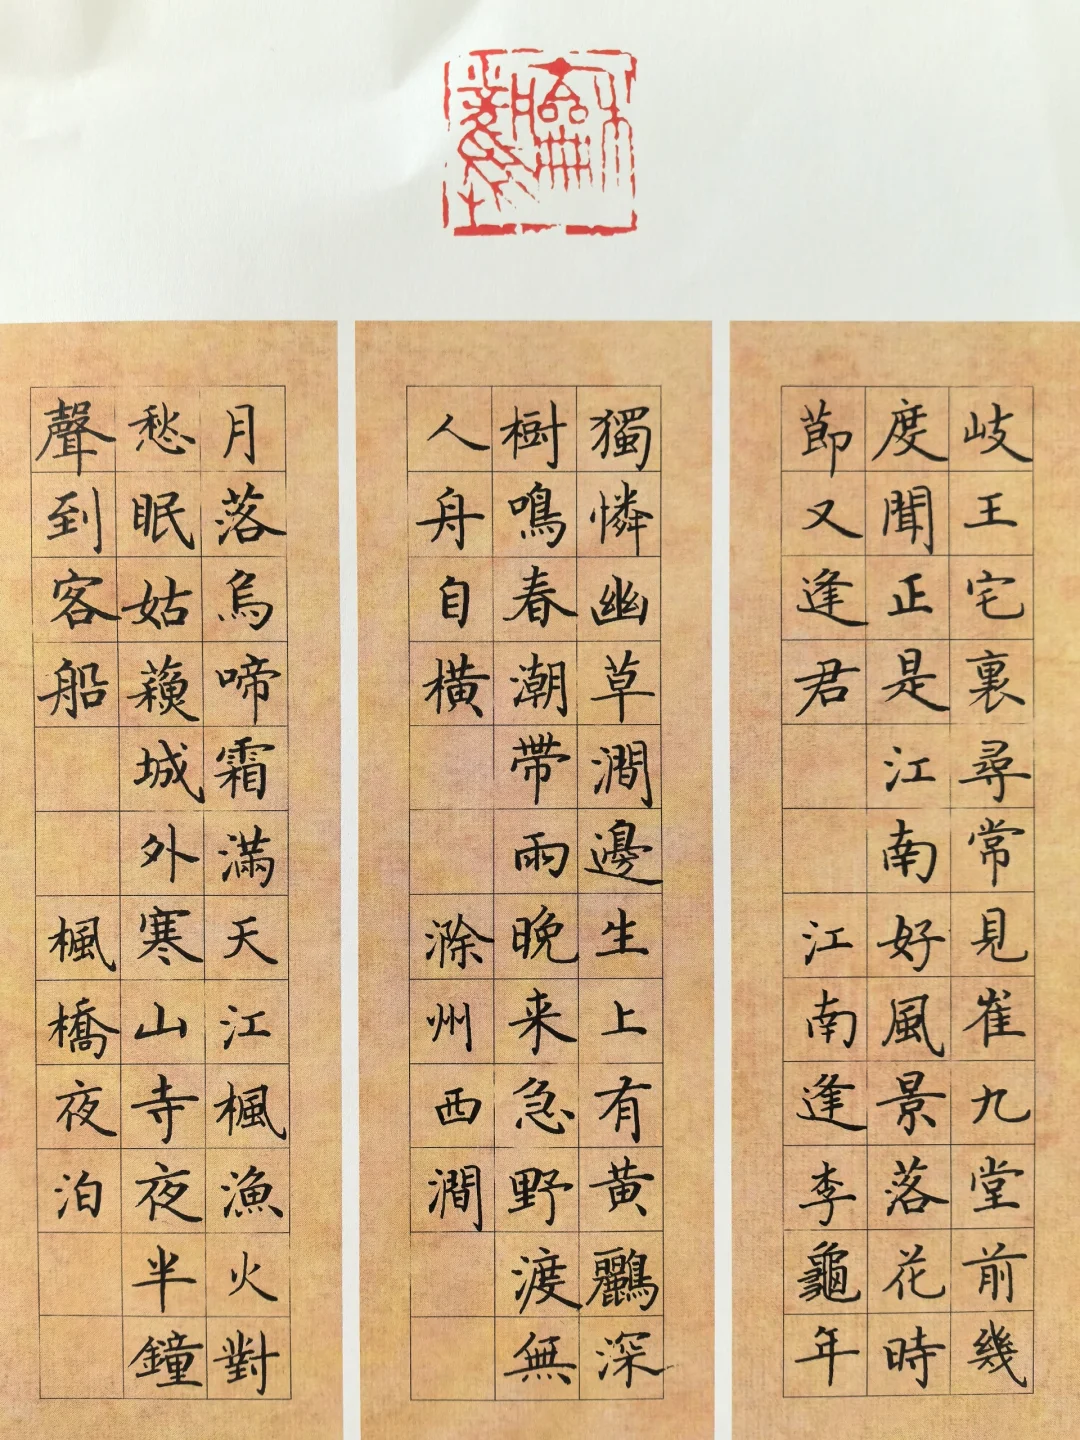 岐王宅裏尋常見崔九堂前幾
度聞正是江南好風景落花時
莭又逢君 江南逢李龜年
獨憐幽草澗邊生上有黃鸝深
樹鳴春潮帶雨晚来急野渡無
人舟自橫 滁州西澗
月落烏啼霜滿天江楓漁火對
愁眠姑蘓城外寒山寺夜半鐘
聲到客船 楓橋夜泊